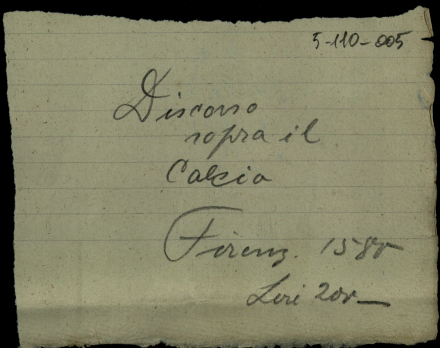 5-110-005
Discorso
sopra il
Calcio
Firenz. 1580
Lire 200—